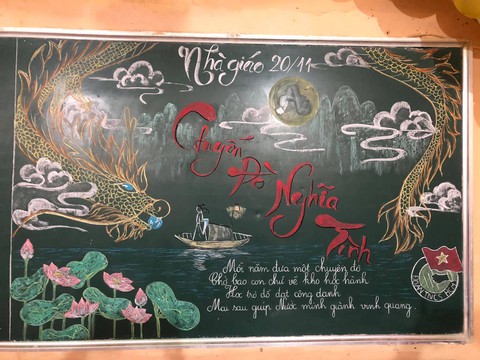 Nhà giáo 20/11
Chuyến
Đò
Nghĩa
Tình
Mỗi năm đưa một chuyến đò
Chở bao con chữ về kho học hành
Học trò đỗ đạt công danh
Mai sau giúp Nước mình giành vinh quang